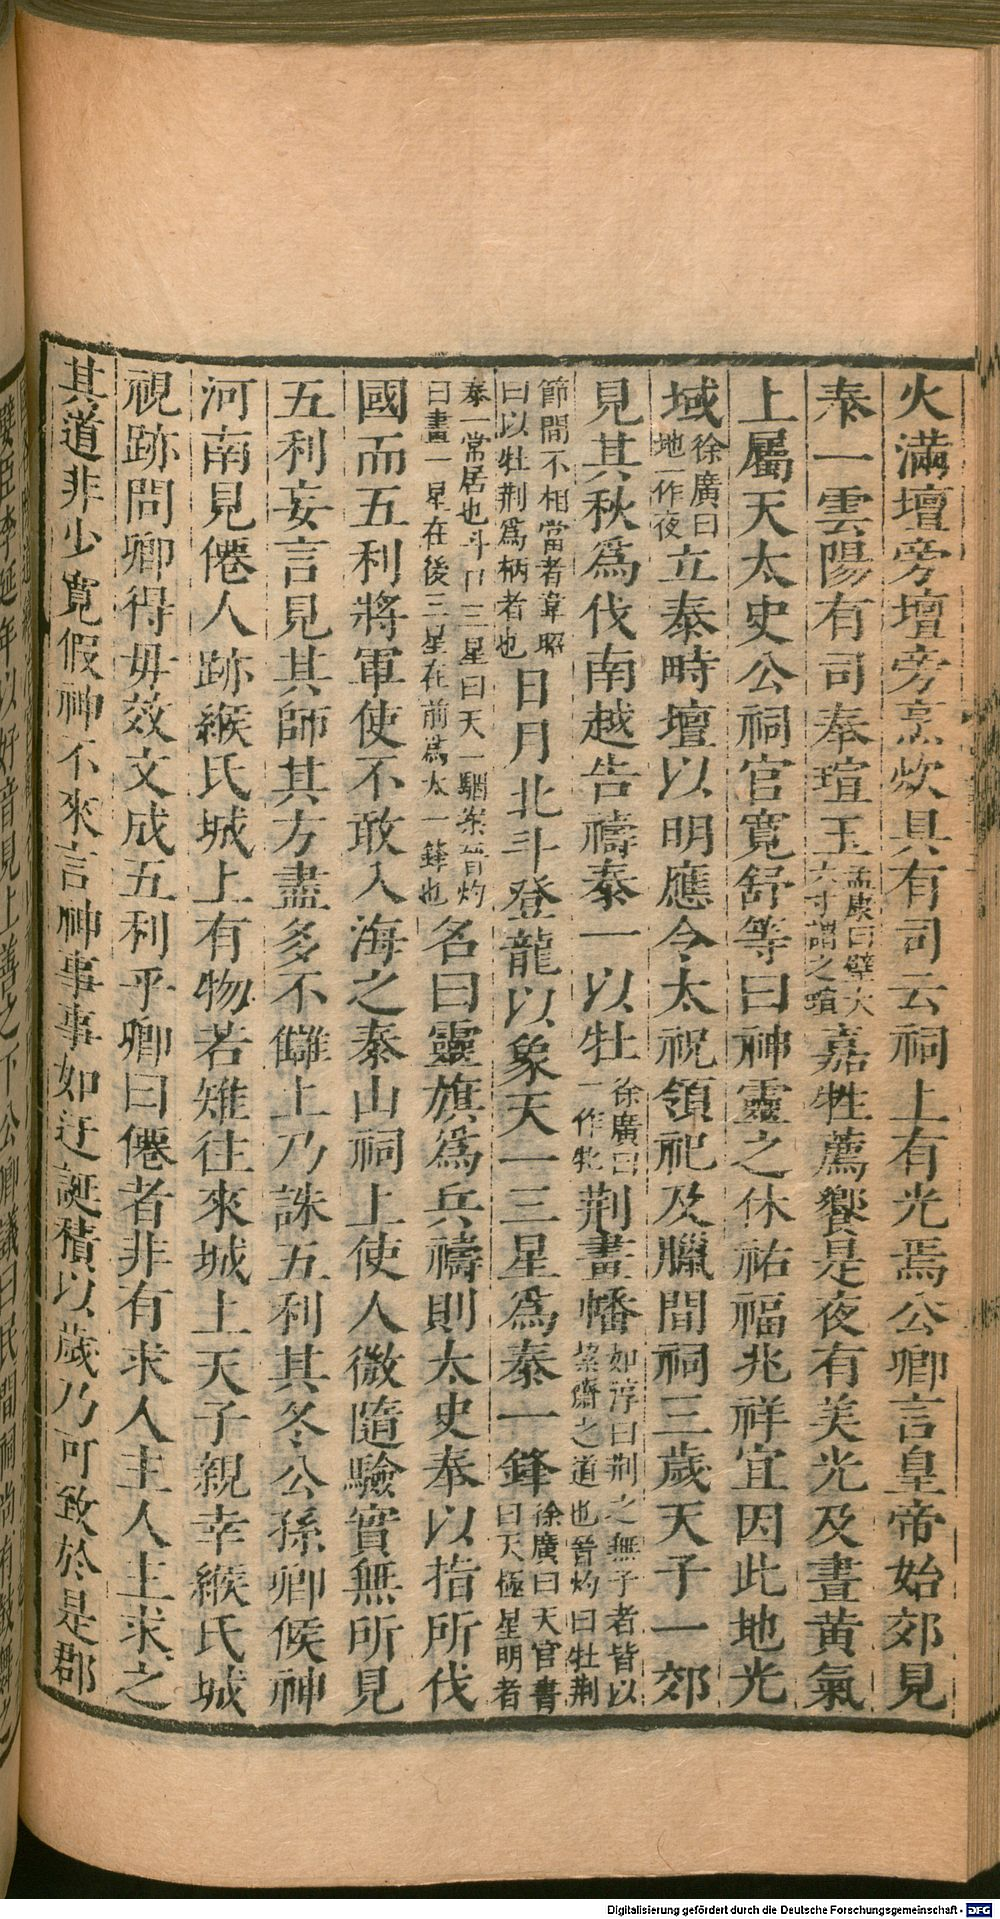 火滿壇旁壇旁烹炊具有司云祠上有光焉公卿言皇帝始郊見
泰一雲陽有司奉瑄玉孟康曰璧大六寸謂之瑄嘉牲薦饗是夜有美光及晝黄氣
上屬天太史公祠官寛舒等曰神靈之休祐福兆祥宜因此地光
域徐廣曰地一作夜立泰畤壇以明應令太祝領祀及臘間祠三歲天子一郊
見其秋爲伐南越告禱泰一以牡徐廣曰一作牝荆畫幡如淳曰荆之無子者皆以絜齋之道也晉灼曰牡荆
節間不相當者韋昭曰以牡荆爲柄者也日月北斗登龍以象天一三星爲泰一鋒徐廣曰天官書曰天極星明者
泰一常居也斗口三星曰天一駰案晉灼曰畫一星在後三星在前爲太一鋒也名曰靈旗爲兵禱則太史奉以指所伐
國而五利將軍使不敢入海之泰山祠上使人微隨驗實無所見
五利妄言見其師其方盡多不讎上乃誅五利其冬公孫卿候神
河南見僊人跡緱氏城上有物若雉往來城上天子親幸緱氏城
視跡問卿得毋效文成五利乎卿曰僊者非有求人主人主求之
其道非少寛假神不來言神事事如迂誕積以歲乃可致於是郡
嬖臣李延年以好音見上善之下公卿議曰民間祠尚有鼓舞之
Digitalisierung gefördert durch die Deutsche Forschungsgemeinschaft - DFG